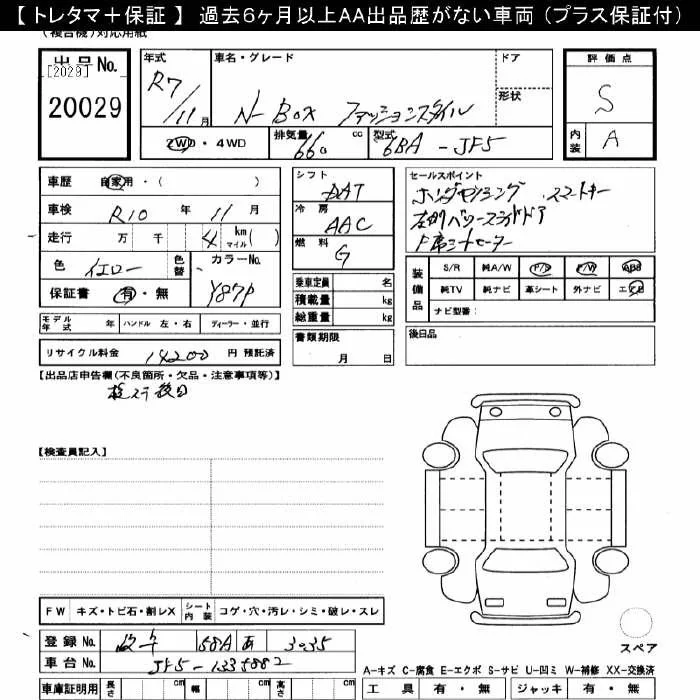 【 トレタマ＋保証 】 過去６ヶ月以上ＡＡ出品歴がない車両（プラス保証付）
(複合機)対応用紙
出品No.
[2029]
20029
年式
R7/11月
車名・グレード
N-BOX ファッションスタイル
ドア
形状
評価点
S
内装
A
2WD・4WD
排気量
660 cc
型式
6BA-JF5
車歴 自家用・( )
車検 R10年 11月
走行 万 千 4 km マイル( )
色 イエロー 色替
カラーNo.
Y87P
保証書 有・無
シフト
DAT
冷房
AAC
燃料
G
乗車定員 名
積載量 kg
総重量 kg
セールスポイント
ホンダセンシング スマートキー
左側パワースライドドア
F席シートヒーター
装備品
S/R 純A/W P/S P/W ABS
純TV 純ナビ 革シート 外ナビ エアB
ナビ型番:
モデル年式 年 ハンドル 左・右 ディーラー・並行
リサイクル料金 14200 円 預託済
書類期限
月 日
後日品
【出品店申告欄(不良箇所・欠品・注意事項等)】
検ステ後日
【検査員記入】
FW キズ・トビ石・割レX シート内装 コゲ・穴・汚レ・シミ・破レ・スレ
登録No. 岐阜 58A あ 3-35
車台No. JF5-1335882
車庫証明用 長さ cm 幅 cm 高さ cm
スペア
A-キズ C-腐食 E-エクボ S-サビ U-凹ミ W-補修 XX-交換済
工具 有・無 ジャッキ 有・無